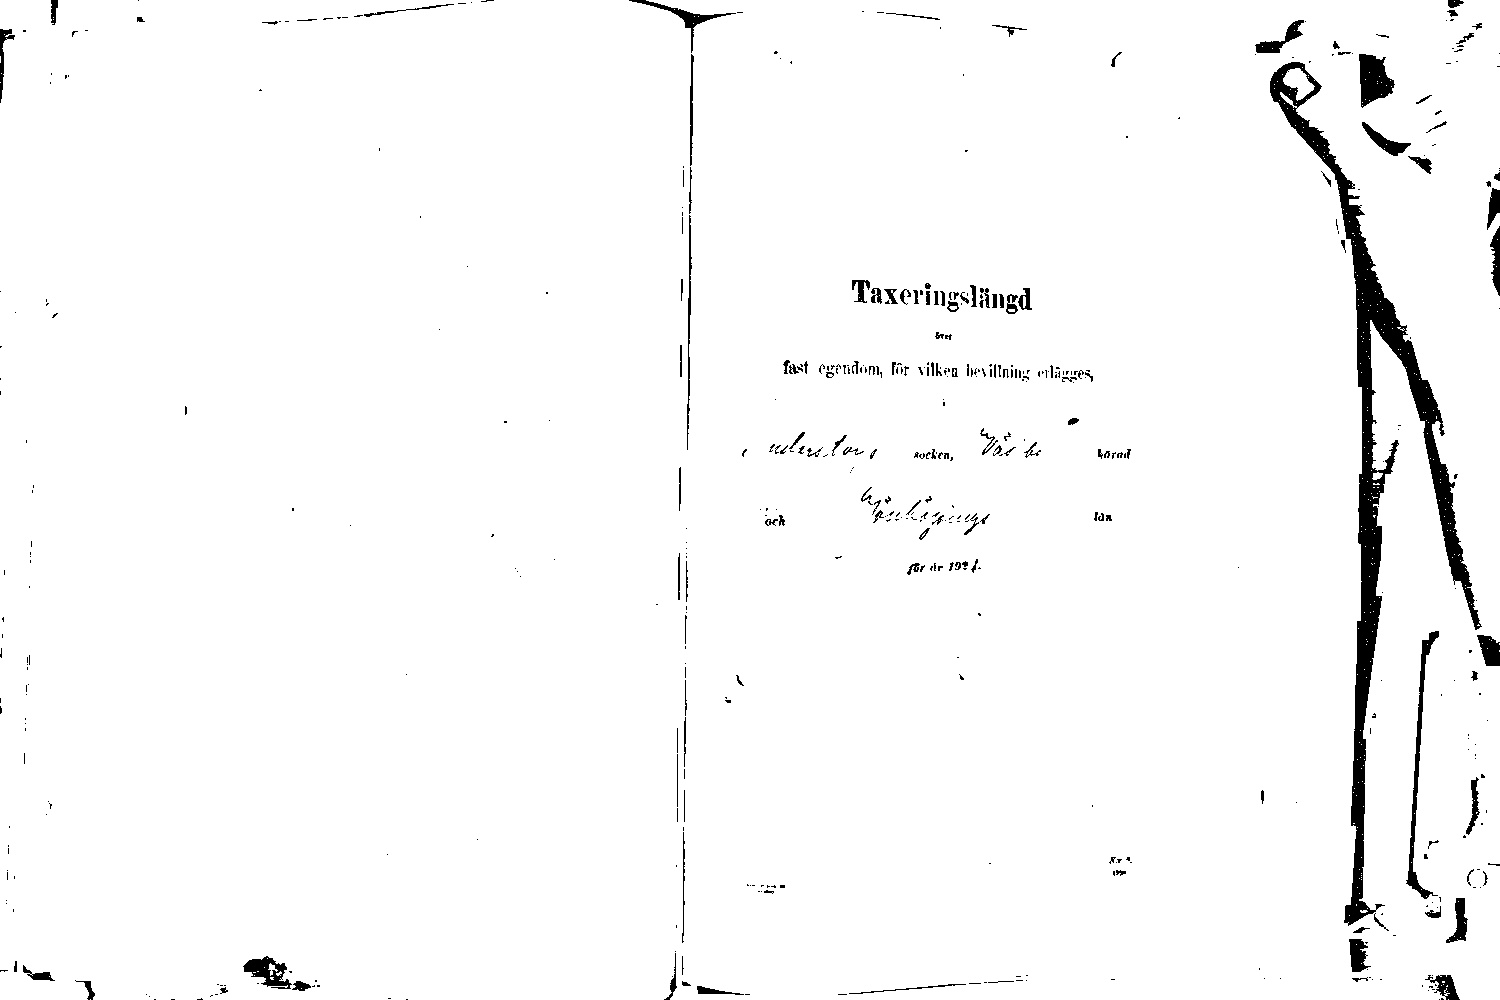 Taxeringslängd
över
fast egendom, för vilken bevillning erlägges,
i
socken, Västbo härad
och Jönköpings län
för år 1921.